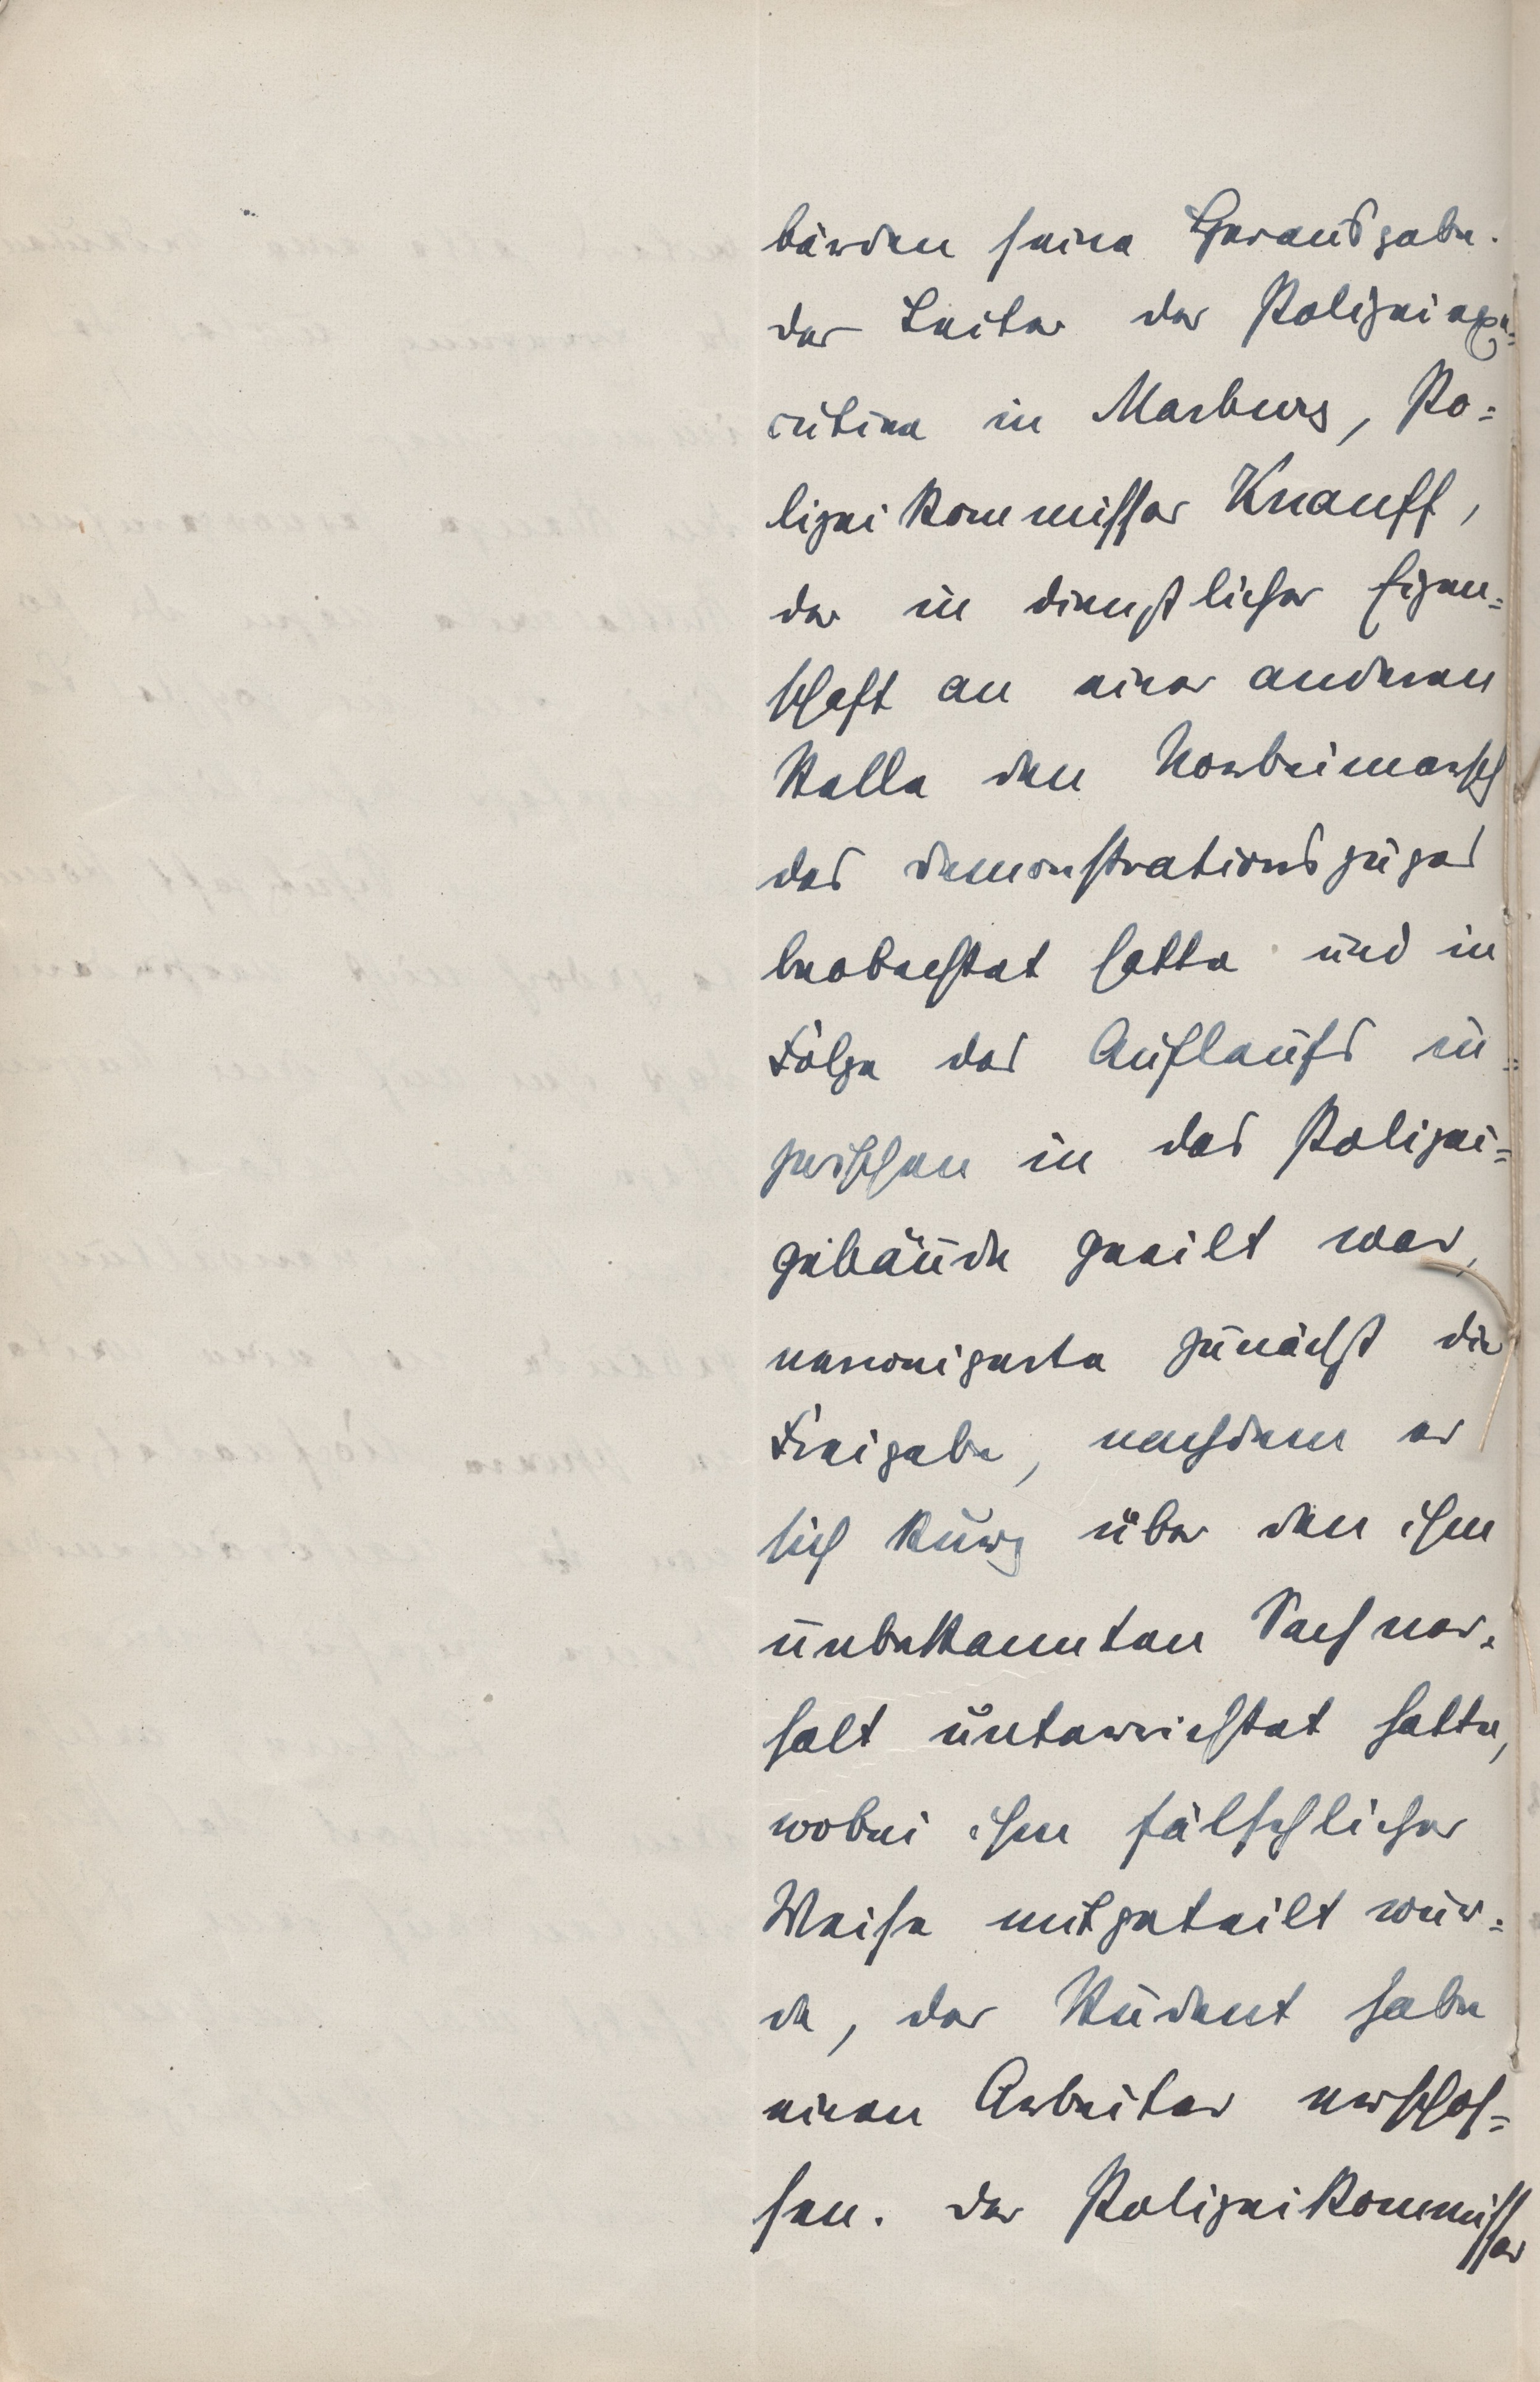 bärden seine Herausgabe.
der Leiter der Polizeiexe=
cutive in Marburg, Po=
lizeikommissar Knauff,
der in dienstlicher Eigen=
schaft an einer anderen
Stelle den Vorbeimarsch
des demonstrationszuges
beobachtet hatte und in
Folge des Auflaufs in=
zwischen in das Polizei=
gebäude geeilt war,
verweigerte zunächst die
Freigabe, nachdem er
sich kurz über den ihm
unbekannten Sachver=
halt unterrichtet hatte,
wobei ihm fälschlicher
Weise mitgeteilt wur=
de, der Student habe
einen Arbeiter erschos=
sen. der Polizeikommissar